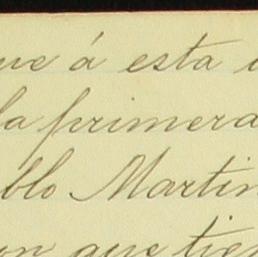 ue á esta
la primera
blo Martin
on que tien